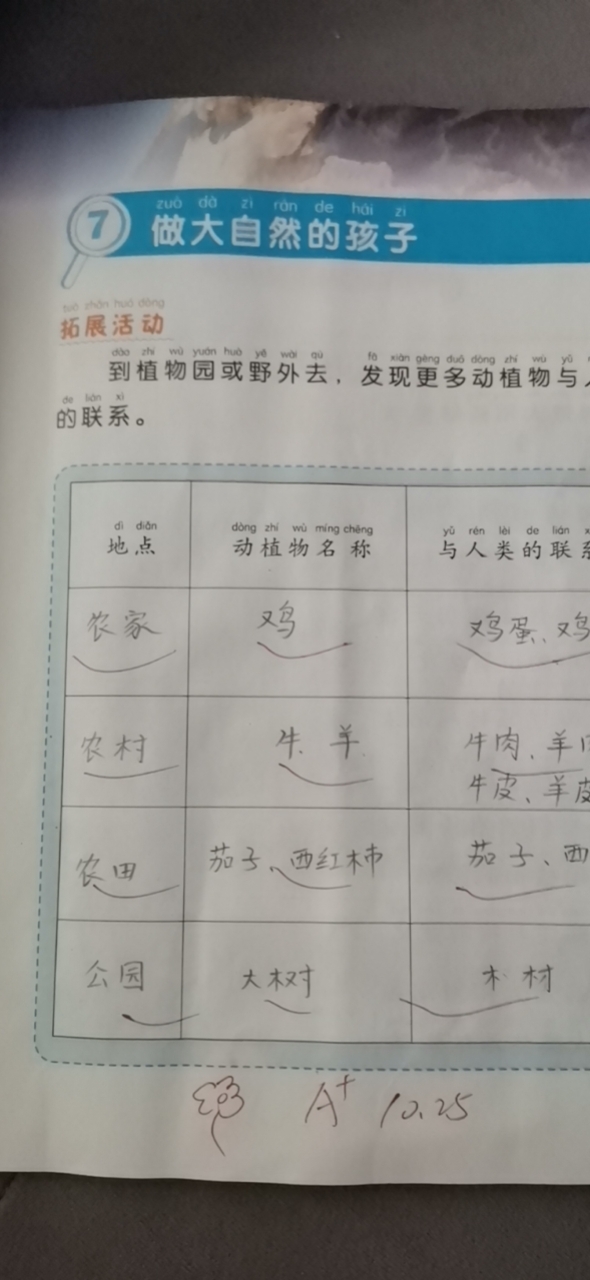 zuò dà zì rán de hái zi
7 做大自然的孩子
tuò zhǎn huó dòng
拓展活动
dào zhí wù yuán huò yě wài qù fā xiàn gèng duō dòng zhí wù yǔ
到植物园或野外去，发现更多动植物与
de lián xì
的联系。
dì diǎn dòng zhí wù míng chēng yǔ rén lèi de lián
地点 动植物名称 与人类的联系
农家 鸡 鸡蛋、鸡
农村 牛、羊 牛肉、羊
牛皮、羊皮
农田 茄子、西红柿 茄子、西
公园 大树 木材
A+ 10.25